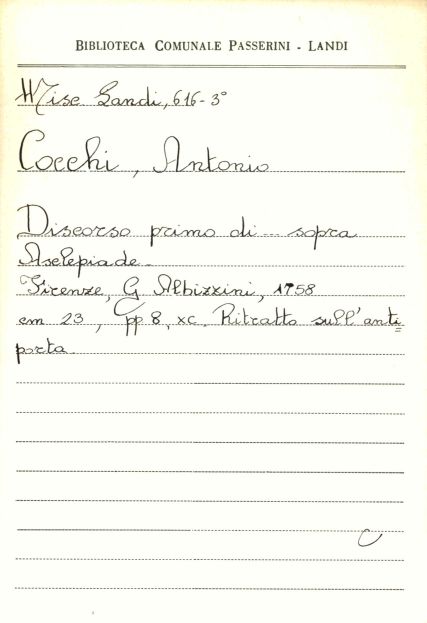 BIBLIOTECA COMUNALE PASSERINI - LANDI
Misc Landi, 616-3°
Cocchi, Antonio
Discorso primo di ... sopra
Asclepiade.
Firenze, G Albizzini, 1758
cm 23, pp. 8, xc. Ritratto sull'anti=
porta.
C